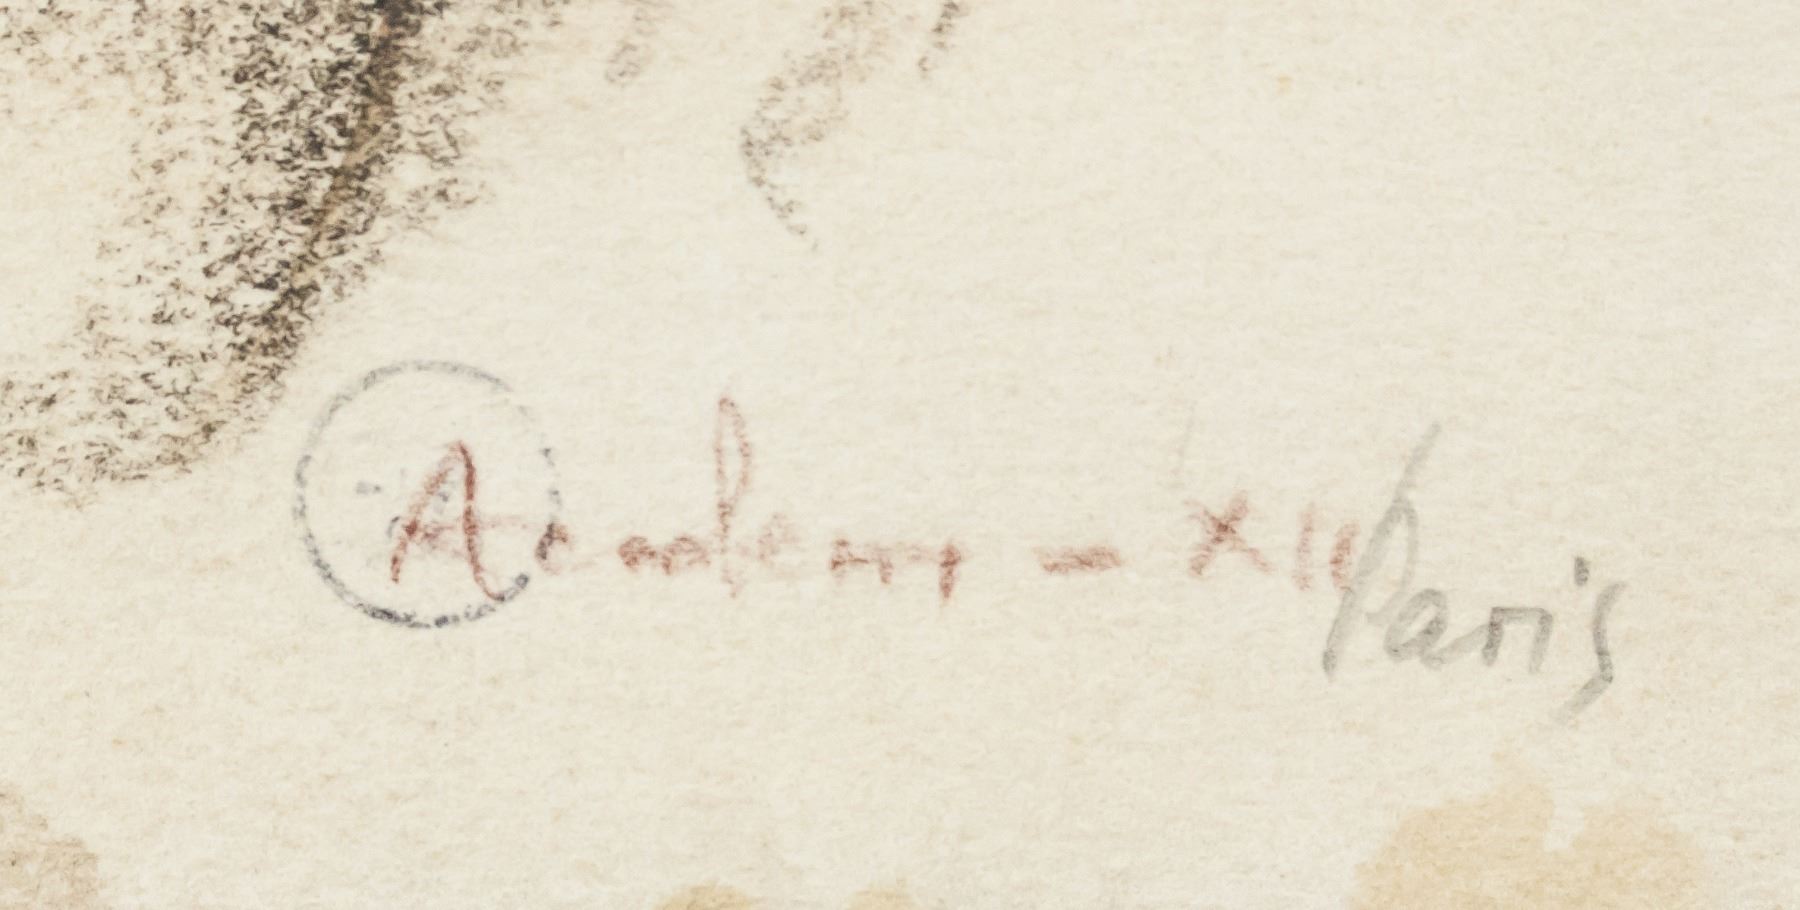 Academy - XII Paris